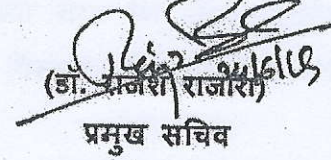 (डॉ. राजेश राजौरा)
प्रमुख सचिव